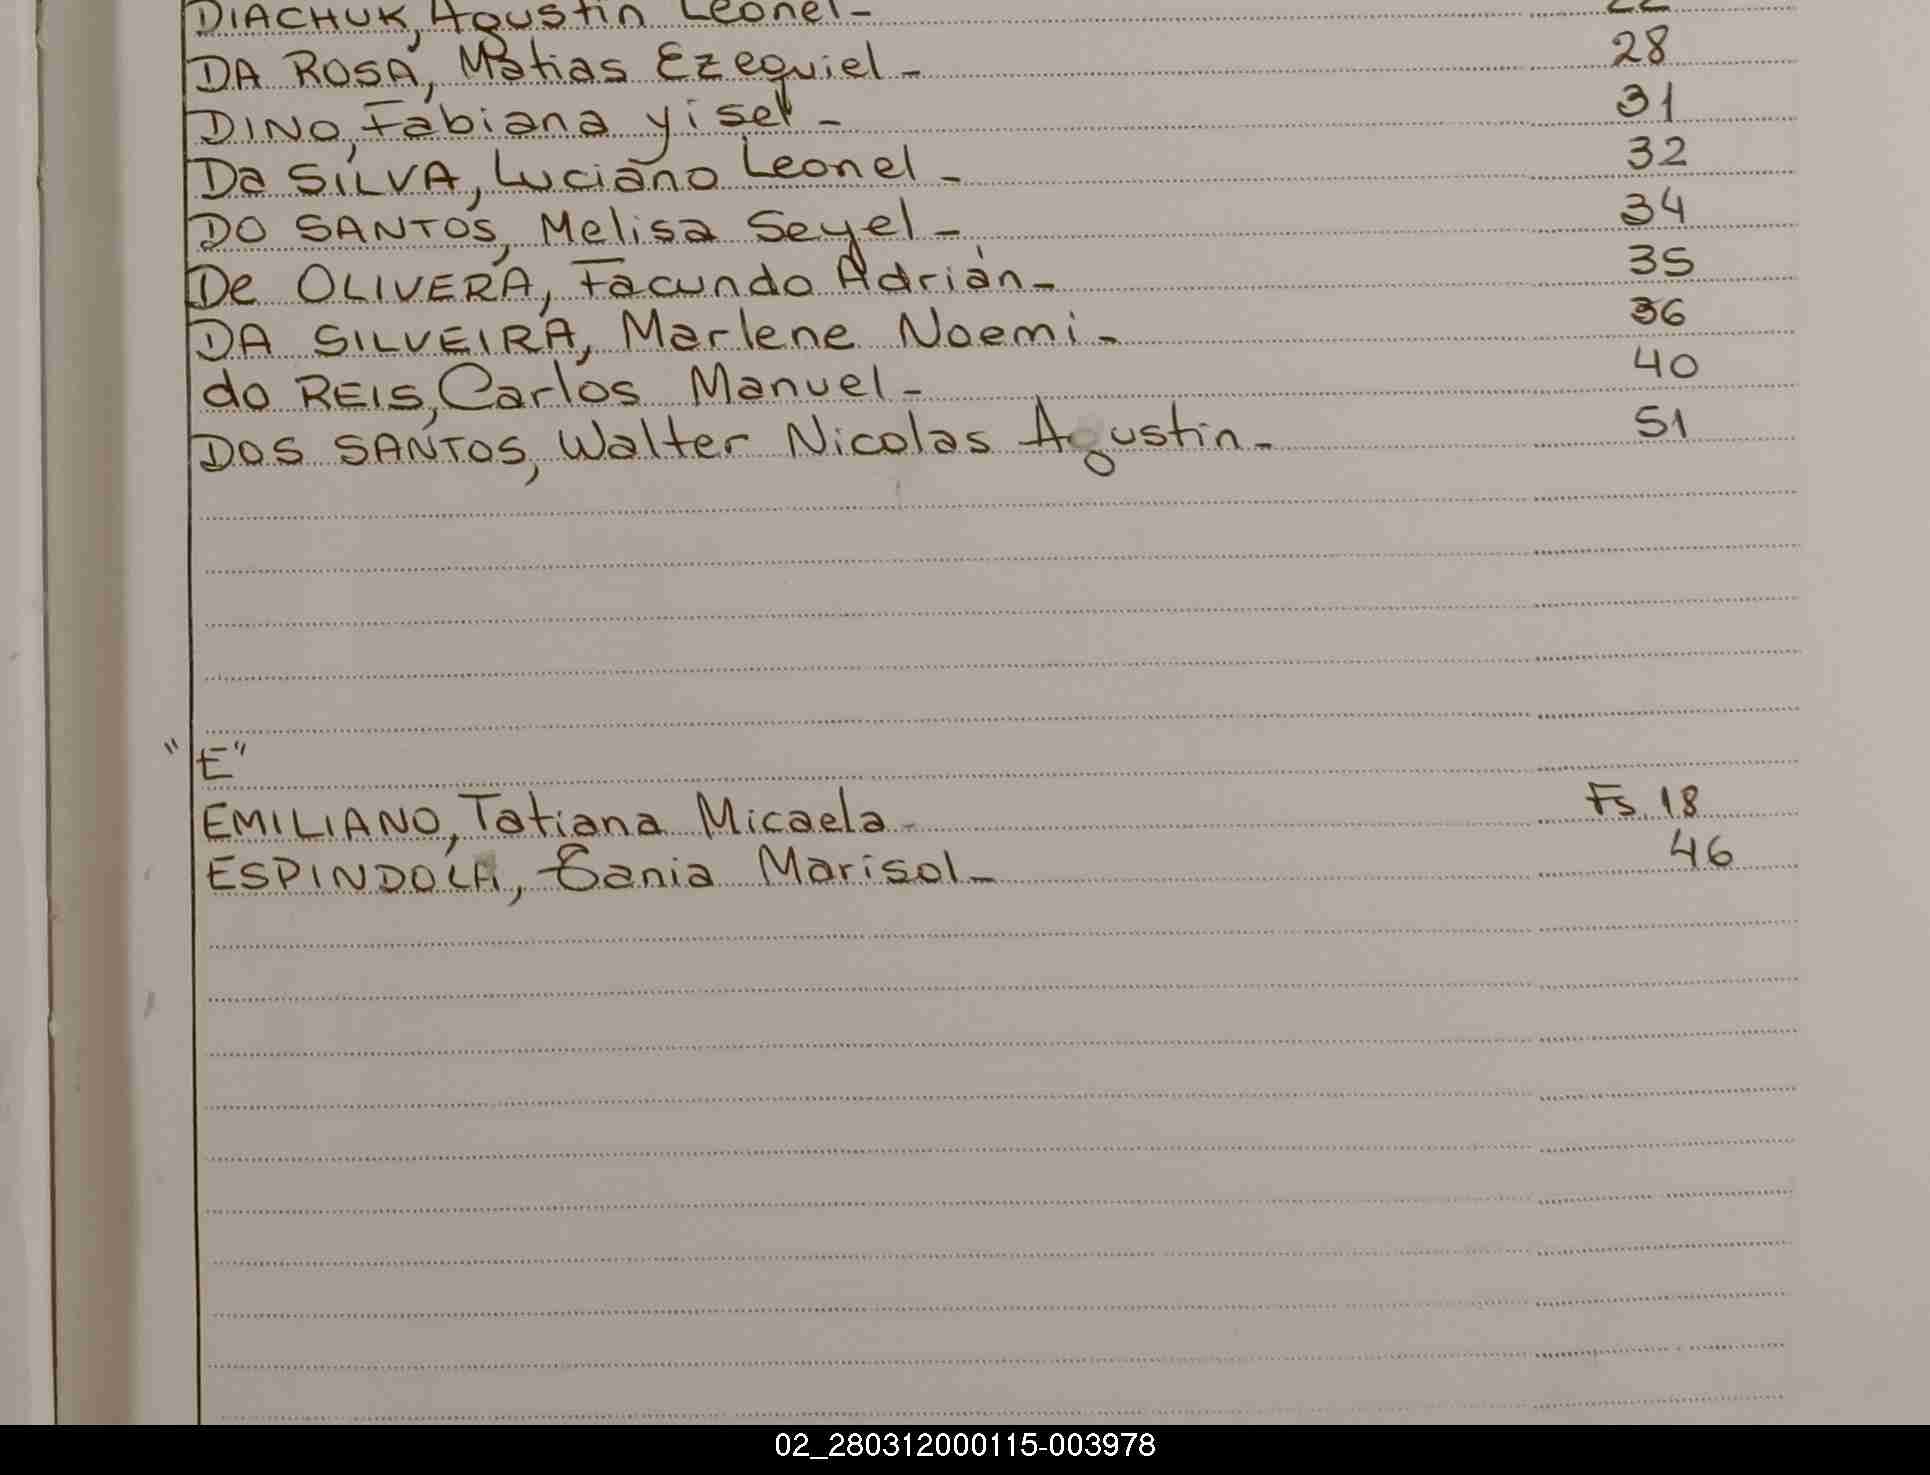 DIACHUK, Agustin Leonel- 22
DA ROSA, Matias Ezequiel - 28
DINO, Fabiana yisel - 31
Da SILVA, Luciano Leonel - 32
DO SANTOS, Melisa Seyel - 34
De OLIVERA, Facundo Adrián - 35
DA SILVEIRA, Marlene Noemi - 36
do REIS, Carlos Manuel - 40
DOS SANTOS, Walter Nicolas Agustin - 51
"E"
EMILIANO, Tatiana Micaela - Fs. 18
ESPINDOLA, Tania Marisol - 46
02_280312000115-003978